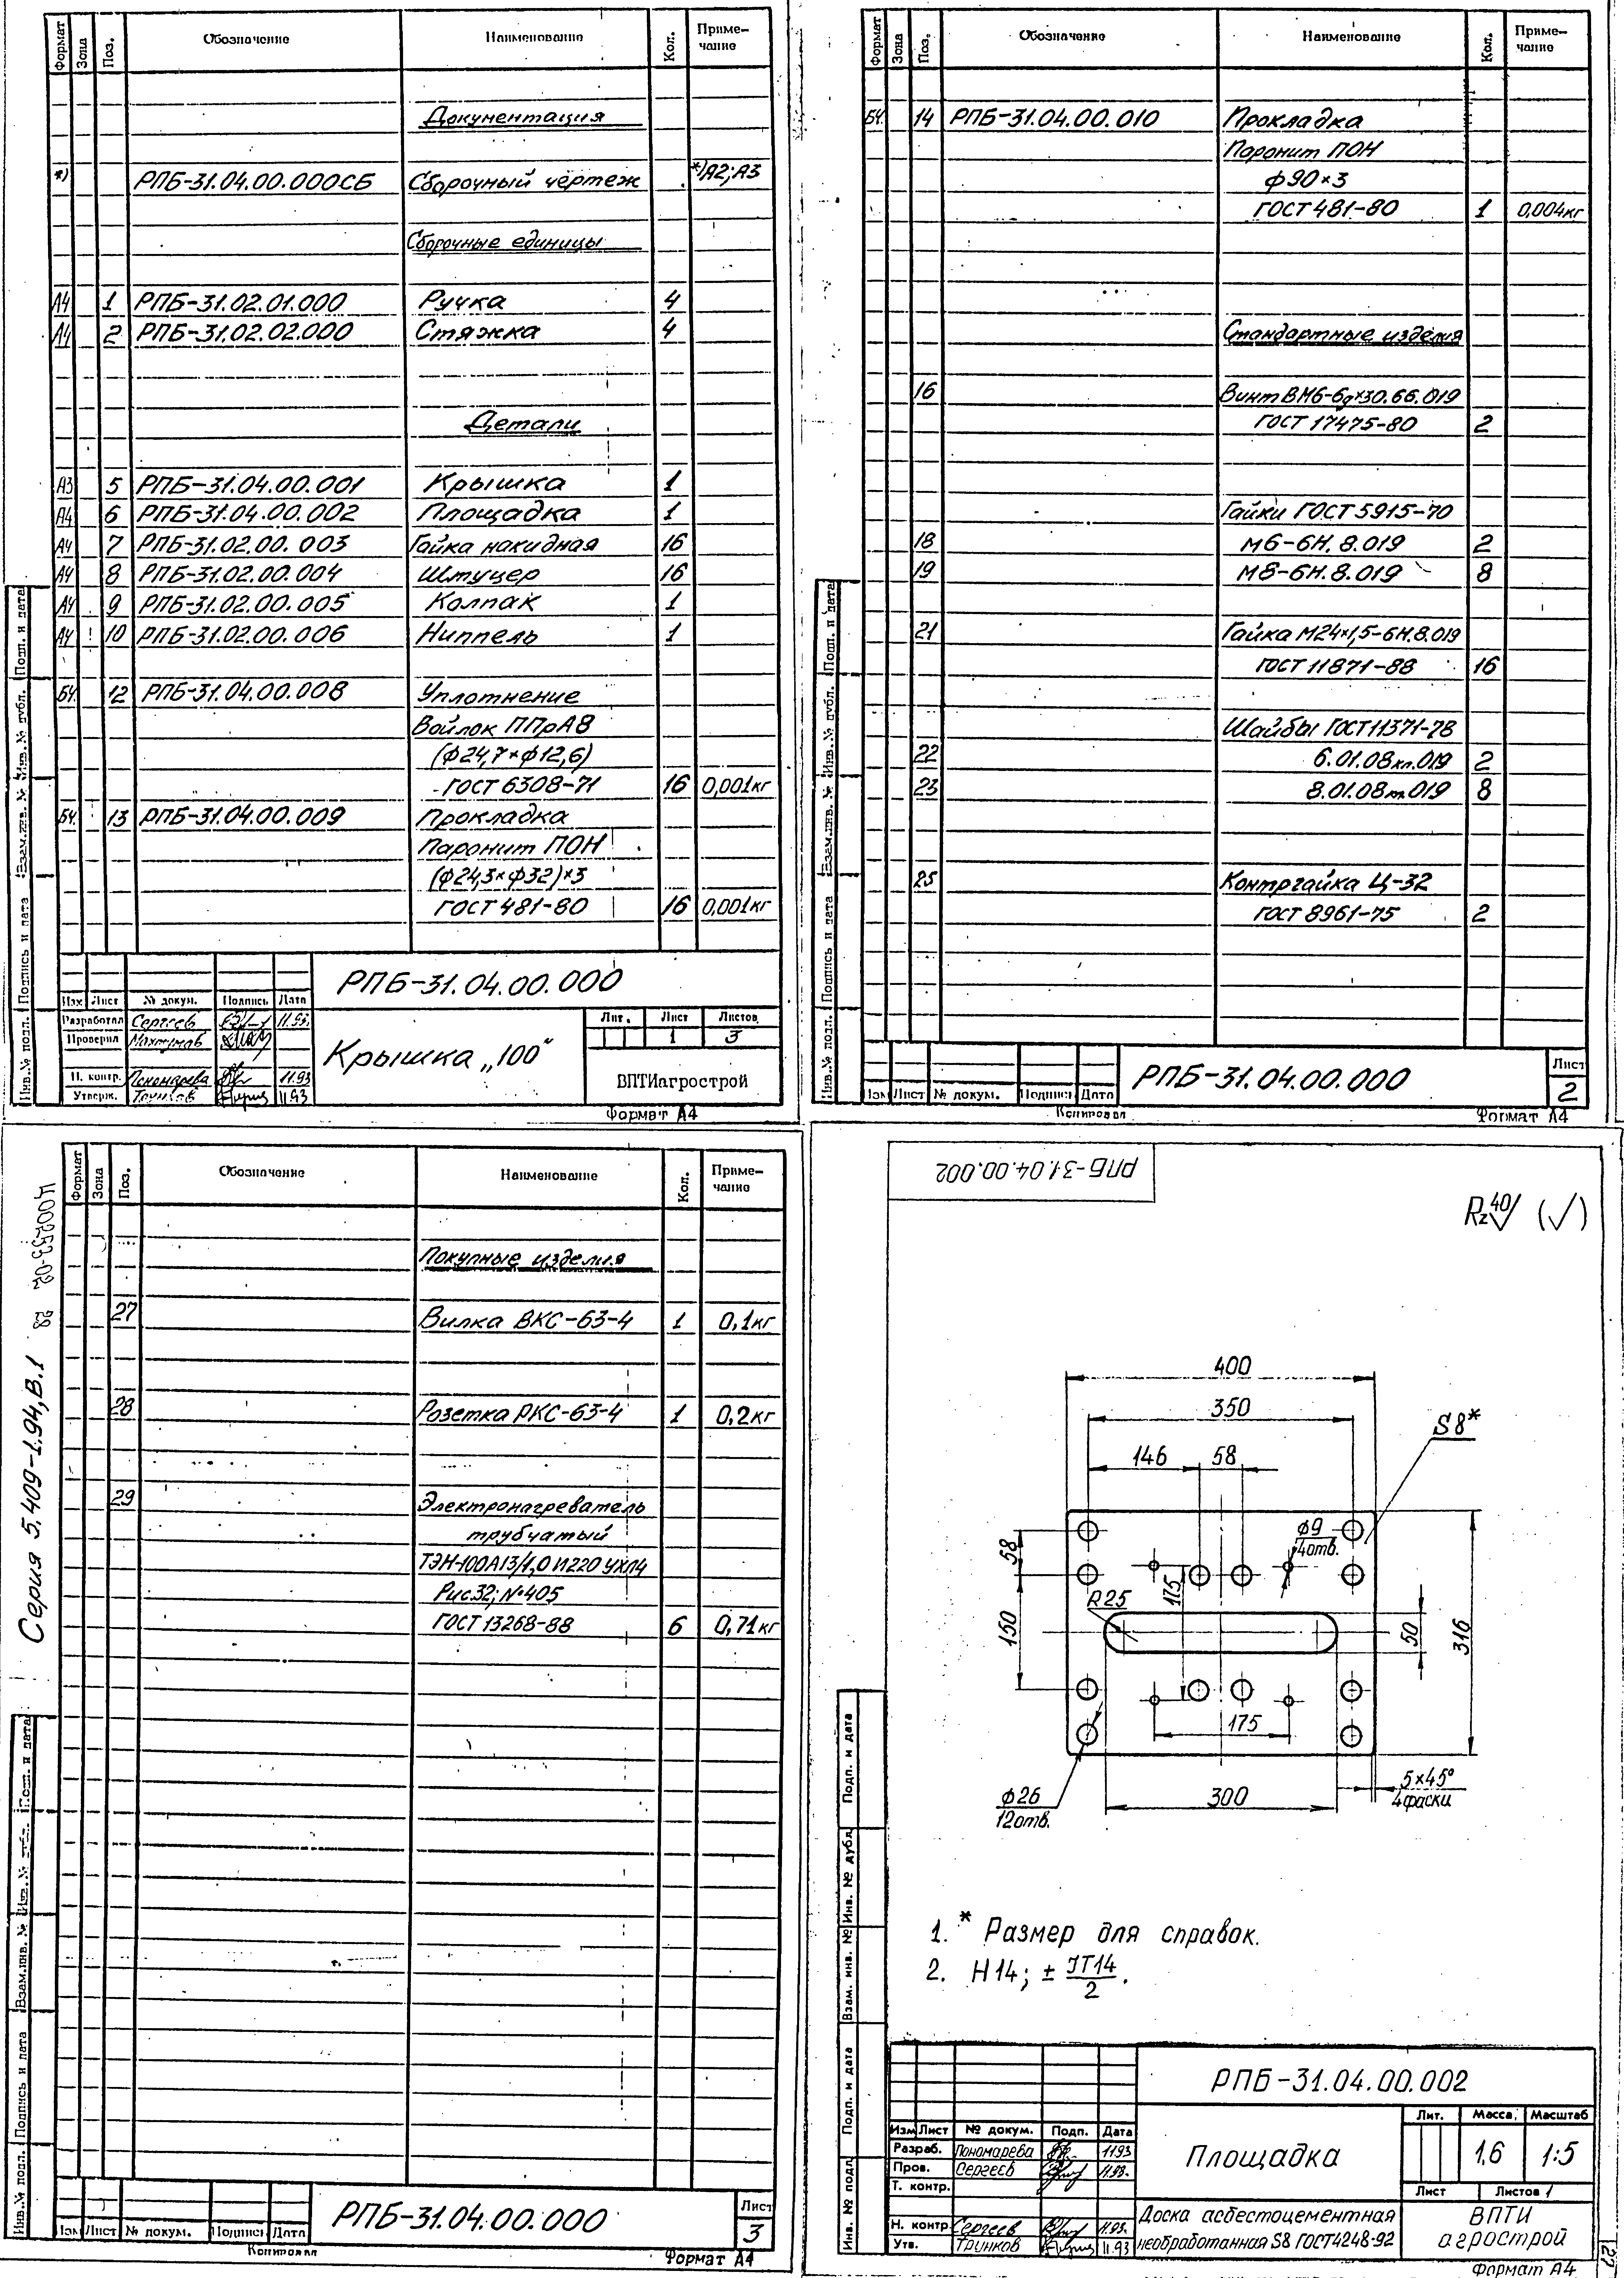 Формат Зона Поз. Обозначение Наименование Кол. Приме-
чание
Документация
*) РПБ-31.04.00.000СБ Сборочный чертеж *)А2;А3
Сборочные единицы
А4 1 РПБ-31.02.01.000 Ручка 4
А4 2 РПБ-31.02.02.000 Стяжка 4
Детали
А3 5 РПБ-31.04.00.001 Крышка 1
А4 6 РПБ-31.04.00.002 Площадка 1
А4 7 РПБ-31.02.00.003 Гайка накидная 16
А4 8 РПБ-31.02.00.004 Штуцер 16
А4 9 РПБ-31.02.00.005 Колпак 1
А4 10 РПБ-31.02.00.006 Ниппель 1
БЧ 12 РПБ-31.04.00.008 Уплотнение
Войлок ППрА8
(ф24,7×ф12,6)
ГОСТ 6308-71 16 0,001кг
БЧ 13 РПБ-31.04.00.009 Прокладка
Паронит ПОН
(ф24,3×ф32)×3
ГОСТ 481-80 16 0,001кг
РПБ-31.04.00.000
Изм Лист № докум. Подпись Дата
Разработал Сергеев 11.93.
Проверил
Н. контр. Пономарева 11.93
Утверж. Тринков 11.93
Крышка „100"
Лит. Лист Листов
1 3
ВПТИагрострой
Формат А4
Инв.№ подл. Подпись и дата Взам.инв. № Инв.№ дубл. Подп. и дата
Формат Зона Поз. Обозначение Наименование Кол. Приме-
чание
БЧ 14 РПБ-31.04.00.010 Прокладка
Паронит ПОН
ф90×3
ГОСТ 481-80 1 0,004кг
Стандартные изделия
16 Винт ВМ6-6g×30.66.019
ГОСТ 17475-80 2
Гайки ГОСТ 5915-70
18 М6-6Н.8.019 2
19 М8-6Н.8.019 8
21 Гайка М24×1,5-6Н.8.019
ГОСТ 11871-88 16
Шайбы ГОСТ 11371-78
22 6.01.08кп.019 2
23 8.01.08кп.019 8
25 Контргайка Ц-32
ГОСТ 8961-75 2
Изм Лист № докум. Подпись Дата
РПБ-31.04.00.000
Лист
2
Копировал Формат А4
Инв.№ подл. Подпись и дата Взам.инв. № Инв.№ дубл. Подп. и дата
Ц00253-02 28
Серия 5.409-1.94, В.1
Формат Зона Поз. Обозначение Наименование Кол. Приме-
чание
Покупные изделия
27 Вилка ВКС-63-4 1 0,1кг
28 Розетка РКС-63-4 1 0,2кг
29 Электронагреватель
трубчатый
ТЭН-100А13/1,0И220 УХЛ4
Рис.32; №405
ГОСТ 13268-88 6 0,71кг
Изм Лист № докум. Подпись Дата
РПБ-31.04.00.000
Лист
3
Копировал Формат А4
Инв.№ подл. Подпись и дата Взам.инв. № Инв.№ дубл. Подп. и дата
РПБ-31.04.00.002
Rz40 (√)
400
350
146 58
S8*
58
ф9
4отв.
175
R25
150
50
316
175
ф26
12отв.
300
5×45°
4фаски
1. * Размер для справок.
2. Н14; ± IT14
2 .
РПБ-31.04.00.002
Изм Лист № докум. Подп. Дата
Разраб. Пономарева 11.93
Пров. Сергеев 11.93.
Т. контр.
Н. контр. Сергеев 11.93.
Утв. Тринков 11.93
Площадка
Лит. Масса Масштаб
1,6 1:5
Лист Листов 1
Доска асбестоцементная
необработанная S8 ГОСТ4248-92
ВПТИ
агрострой
Формат А4
27
Инв. № подл Подп. и дата Взам. инв. № Инв. № дубл Подп. и дата